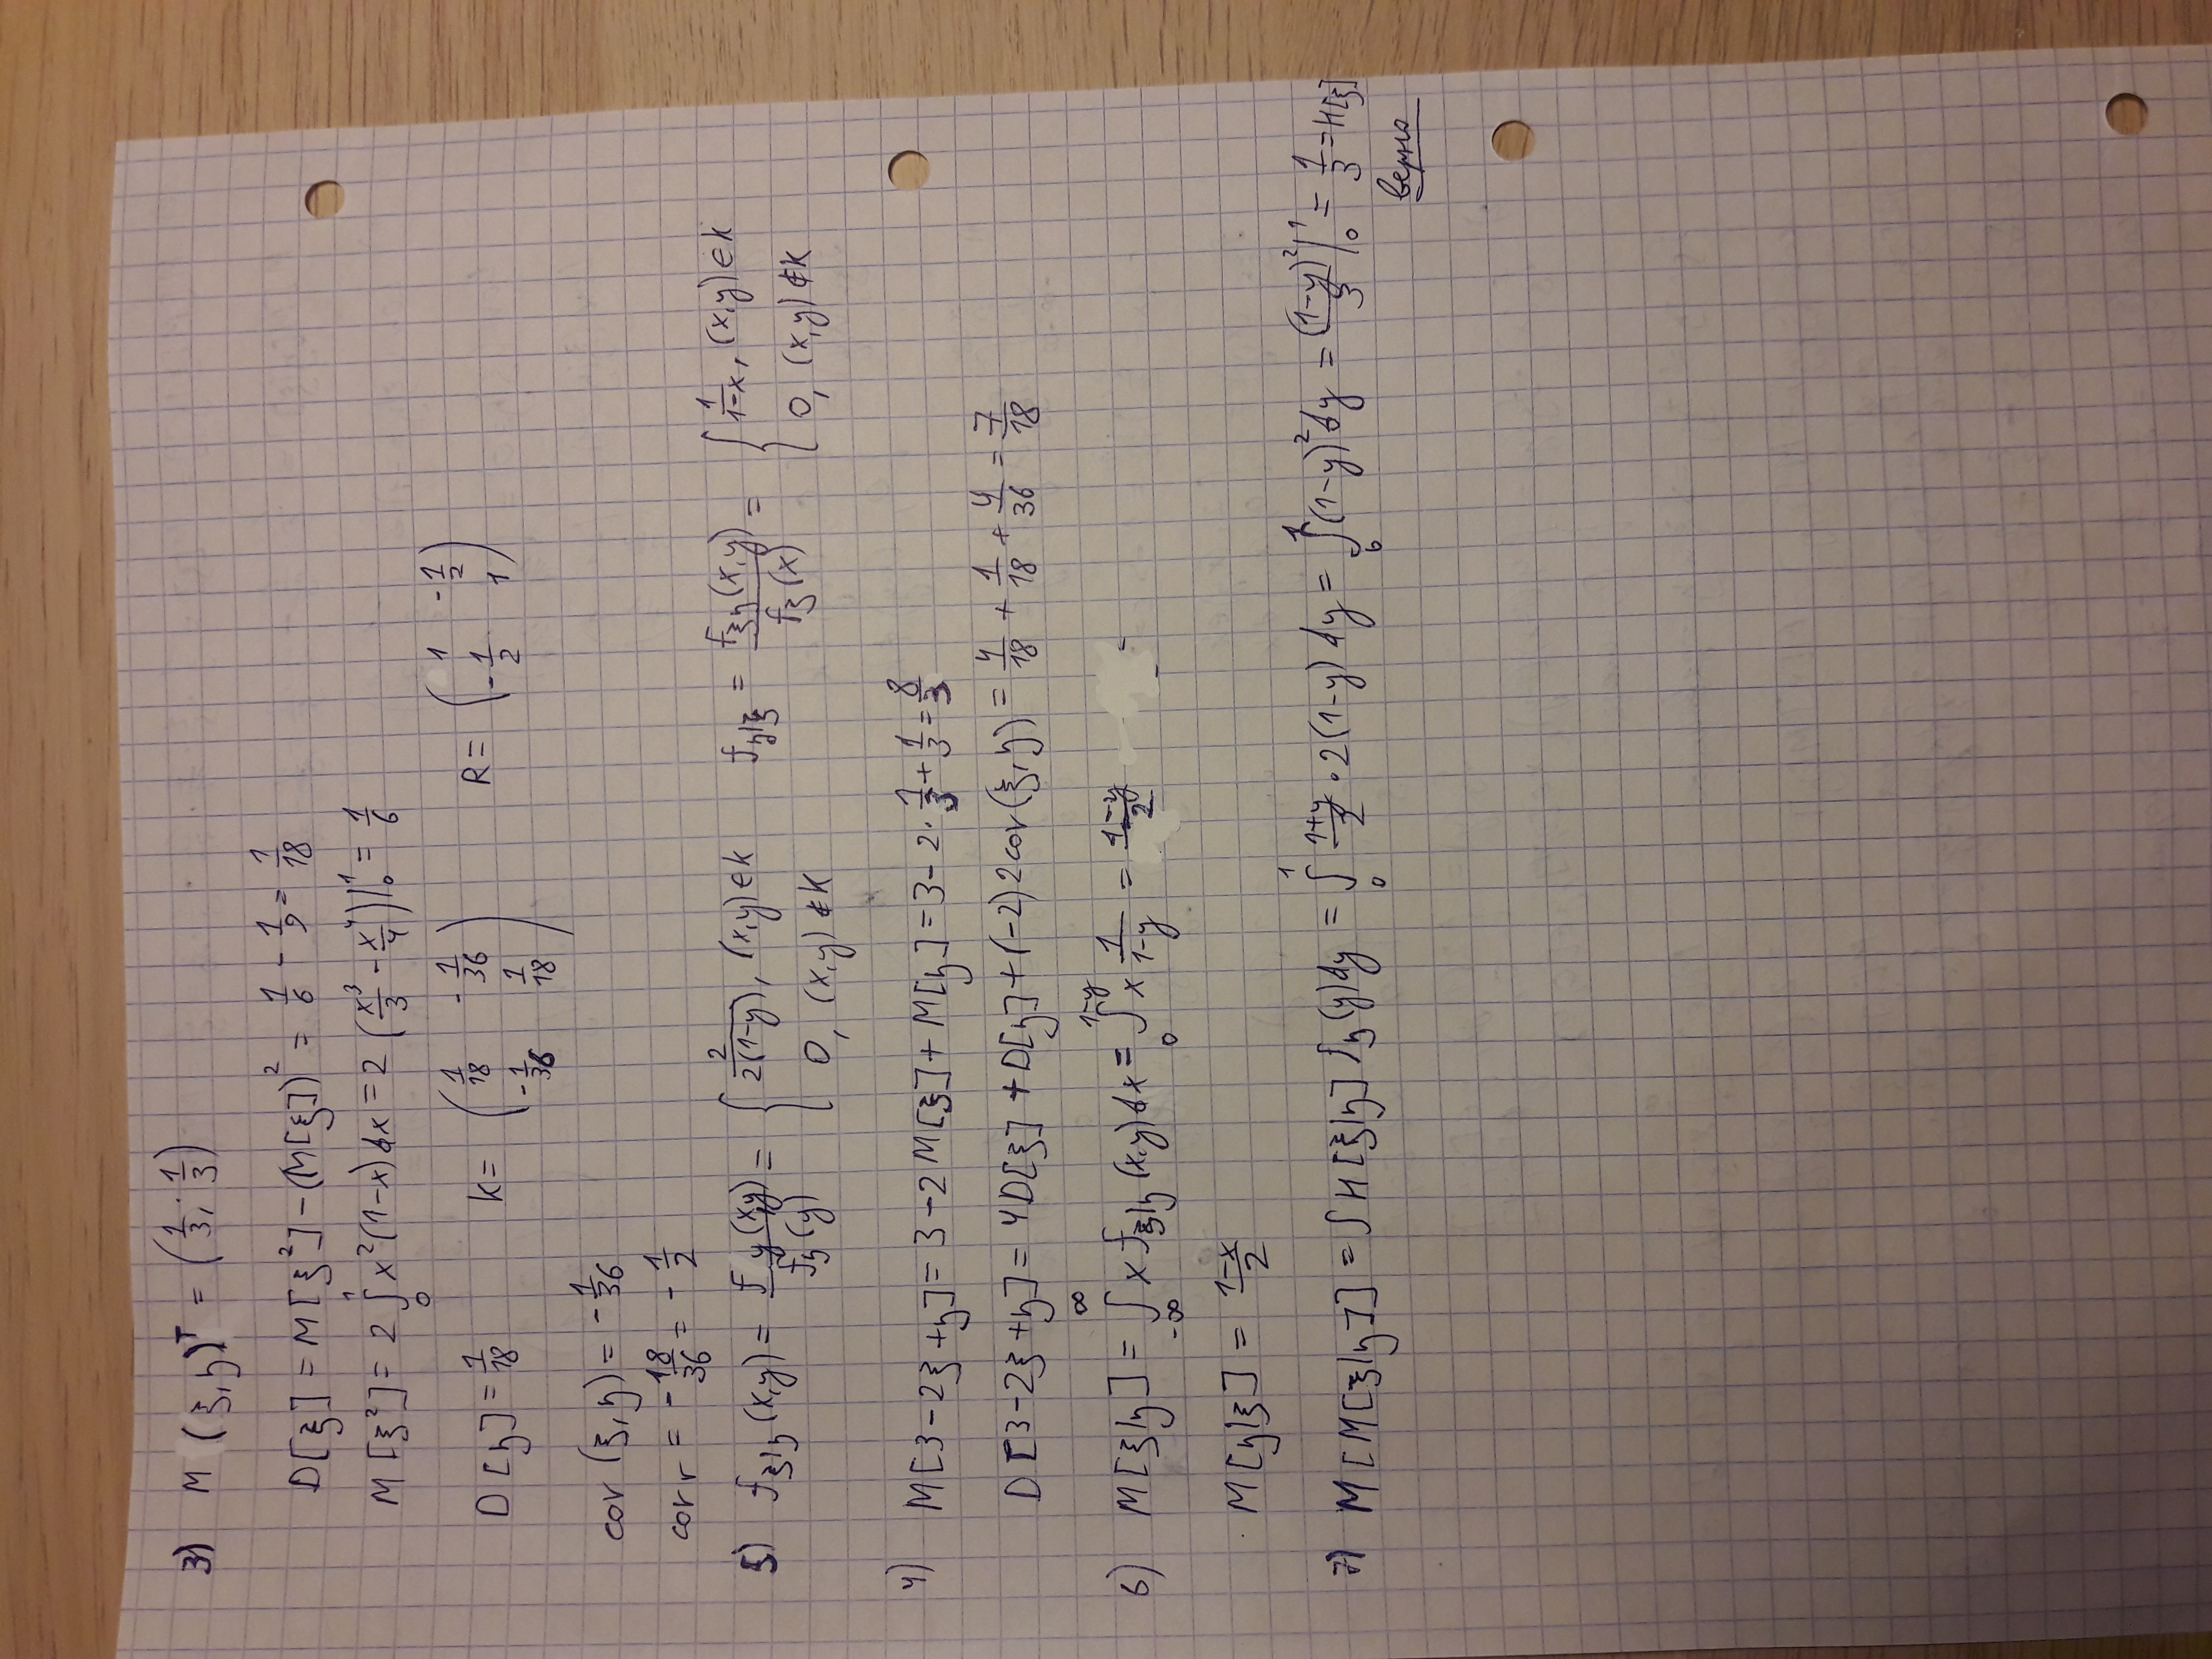 3) M (ξ, η)ᵀ = (1/3; 1/3)
D[ξ] = M[ξ²] − (M[ξ])² = 1/6 − 1/9 = 1/18
M[ξ²] = 2 ∫₀¹ x²(1−x)dx = 2 (x³/3 − x⁴/4)|₀¹ = 1/6
D[η] = 1/18 K = (1/18 −1/36 −1/36 1/18) R = (1 −1/2 −1/2 1)
cov (ξ, η) = −1/36
corr = −18/36 = −1/2
5) f_ξ|η (x,y) = f y(x,y)/f_η(y) = { 2/2(1−y), (x,y) ∈ K 0, (x,y) ∉ K f_η|ξ = f_ξη(x,y)/f_ξ(x) = { 1/1−x, (x,y) ∈ K 0, (x,y) ∉ K
4) M[3−2ξ+η] = 3−2M[ξ]+M[η] = 3−2·1/3+1/3 = 8/3
D[3−2ξ+η] = 4D[ξ]+D[η]+(−2)2cov(ξ, η) = 4/18 + 1/18 + 4/36 = 7/18
6) M[ξ|η] = ∫_{−∞}^{∞} x f_ξ|η (x,y)dx = ∫₀^{1−y} x 1/1−y = 1−y/2 =
M[η|ξ] = 1−x/2
7) M[M[ξ|η]] = ∫ M[ξ|η] f_η(y)dy = ∫₀¹ 1+y/2 · 2(1−y) dy = ∫₀¹ (1−y)² dy = (1−y)²/3 |₀¹ = 1/3 = M[ξ]
верно